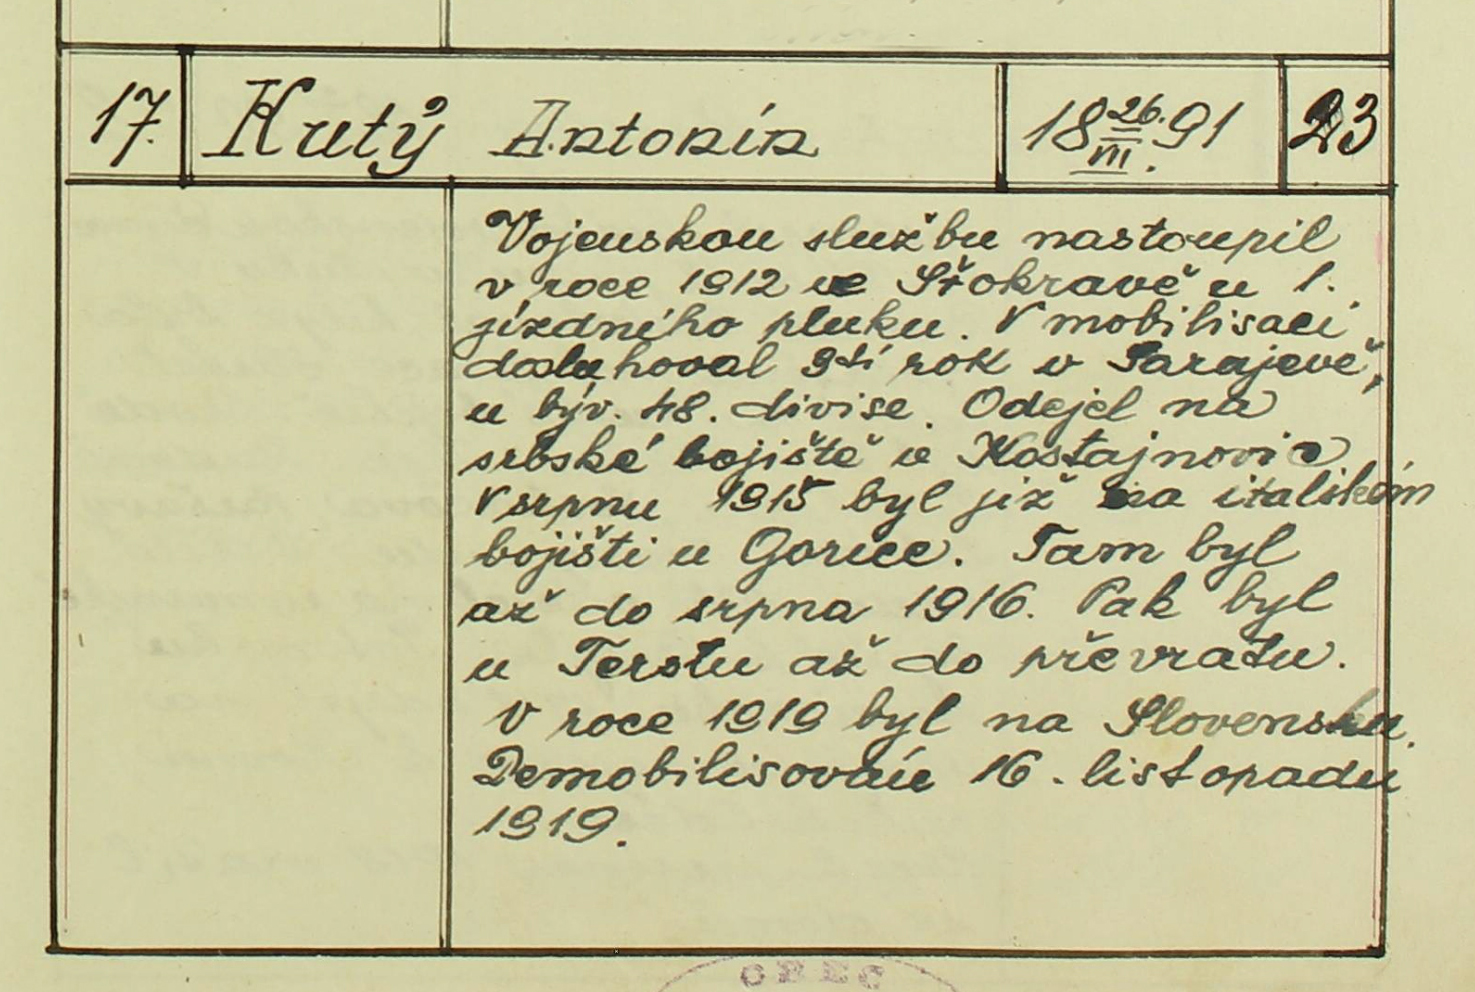 17. Krutý Antonín 18 26./III. 91 23
Vojenskou službu nastoupil
v roce 1912 ve Štokravě u 1.
jízdního pluku. V mobilisaci
dosluhoval 3tí rok v Sarajevě,
u býv. 48. divise. Odejel na
srbské bojiště u Kostajnovic
V srpnu 1915 byl již na italském
bojišti u Gorice. Tam byl
až do srpna 1916. Pak byl
u Terstu až do převratu.
V roce 1919 byl na Slovensku.
Demobilisován 16. listopadu
1919.
OBEC